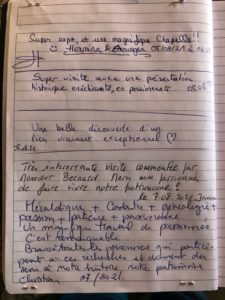 Super expo, et une magnifique Chapelle !!
Hermine & Georges 05/08/21
Super visite avec une présentation
historique
Une belle découverte d'un
lieu vraiment exceptionnel ♡
Très intéressante visite commentée par
Monsieur Bernard. Merci aux personnes
de faire vivre notre patrimoine !
le 7.08.2021
Héraldique + Castautes + généalogie +
passion + patience + persévérance
Un magnifique travail de personnes
C'est remarquable
Bravo à toutes les personnes qui partici-
pent à ces recherches et donnent du
sens à notre histoire notre patrimoine
Christian 07/2021.